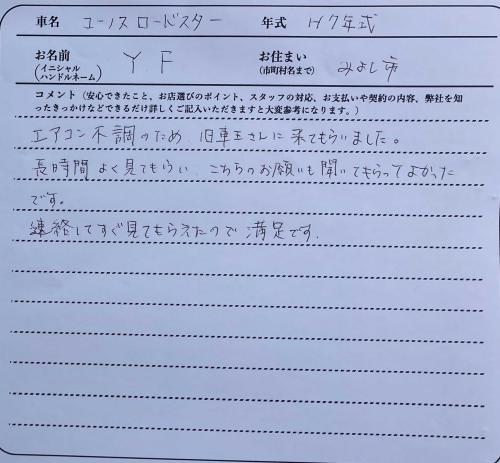 車名 ユーノス ロードスター 年式 H7年式
お名前 (イニシャル ハンドルネーム) Y F お住まい (市町村名まで) みよし市
コメント（安心できたこと、お店選びのポイント、スタッフの対応、お支払いや契約の内容、弊社を知
ったきっかけなどできるだけ詳しくご記入いただきますと大変参考になります。）
エアコン不調のため、旧車王さんに来てもらいました。
長時間よく見てもらい、こちらのお願いも聞いてもらってよかった
です。
連絡してすぐ見てもらえたので満足です。